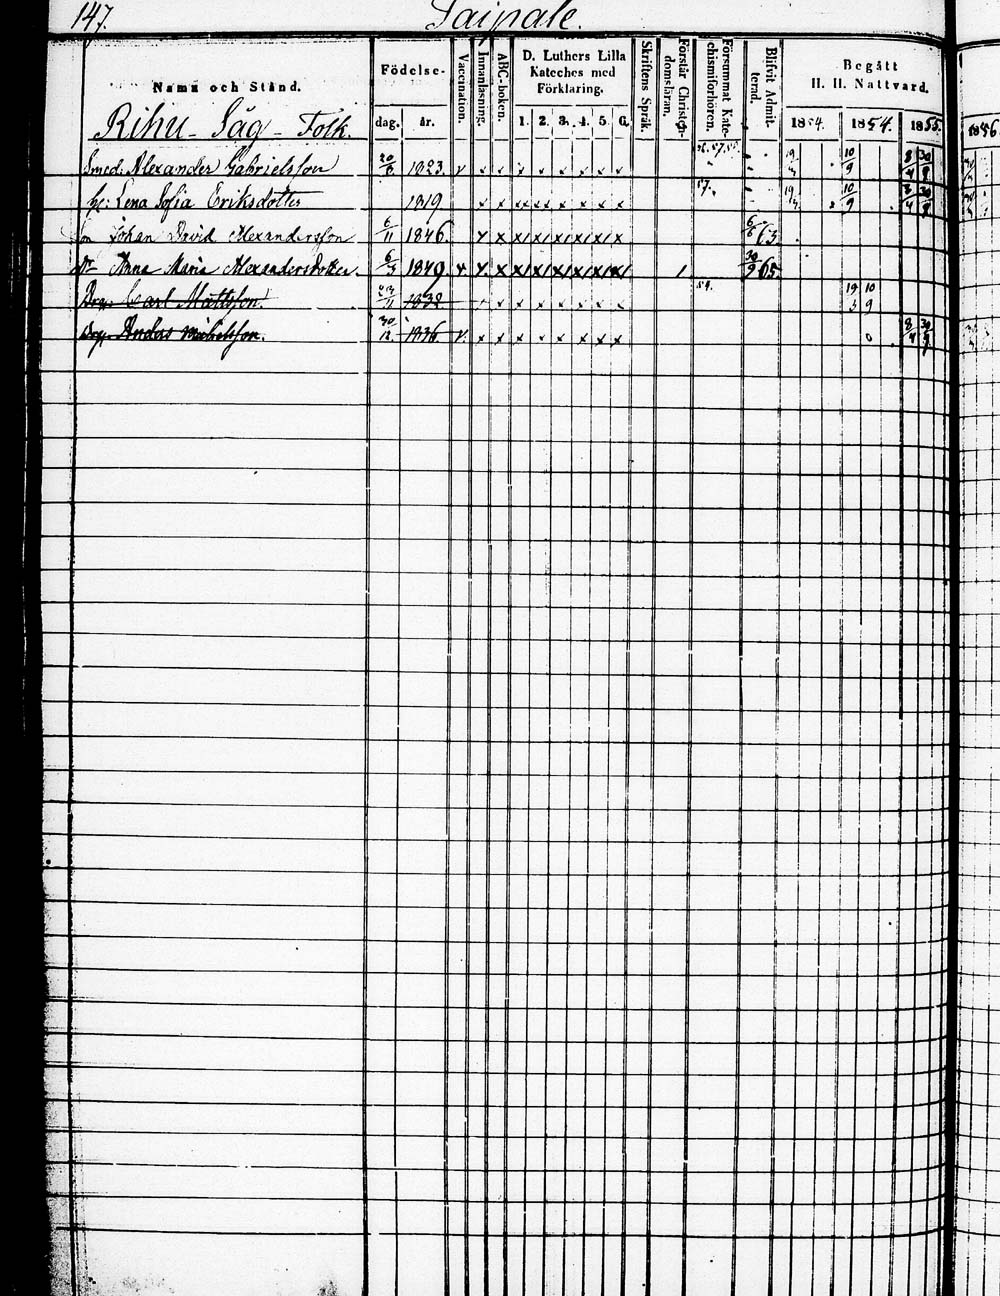 147. Saipale.
Namn och Stånd. Födelse- dag. år. Vaccination. Innanläsning. ABC-boken. D. Luthers Lilla Kateches med Förklaring. 1. 2. 3. 4. 5. 6. Skriftens Språk. Förstår Christendomsläran. Försummat Katechismiförhören. Blifvit Admitterad. Begått H. H. Nattvard. 1854. 1854. 1855. 1856
Rihu - Såg - Folk.
Smed: Alexander Gabrielsson 20/6 1823. v x x x x x x x x 19/3 10/9 8/4 30/9
h: Lena Sofia Eriksdotter 1819 x x x x x x x x 57. 19/3 10/9 8/4 30/9
Son Johan David Alexandersson 6/11 1846. x x x x x x x x 6/6 63.
Dr Anna Maria Alexandersdotter 6/3 1849 v x x x x x x x x 1 30/9 65.
Drg. Carl Mattsson. 23/11 1832 x x x x x x x 54. 19/3 10/9
Drg. Anders Michelsson. 30/12 1836 v. x x x x x x x x 0 8/4 30/9